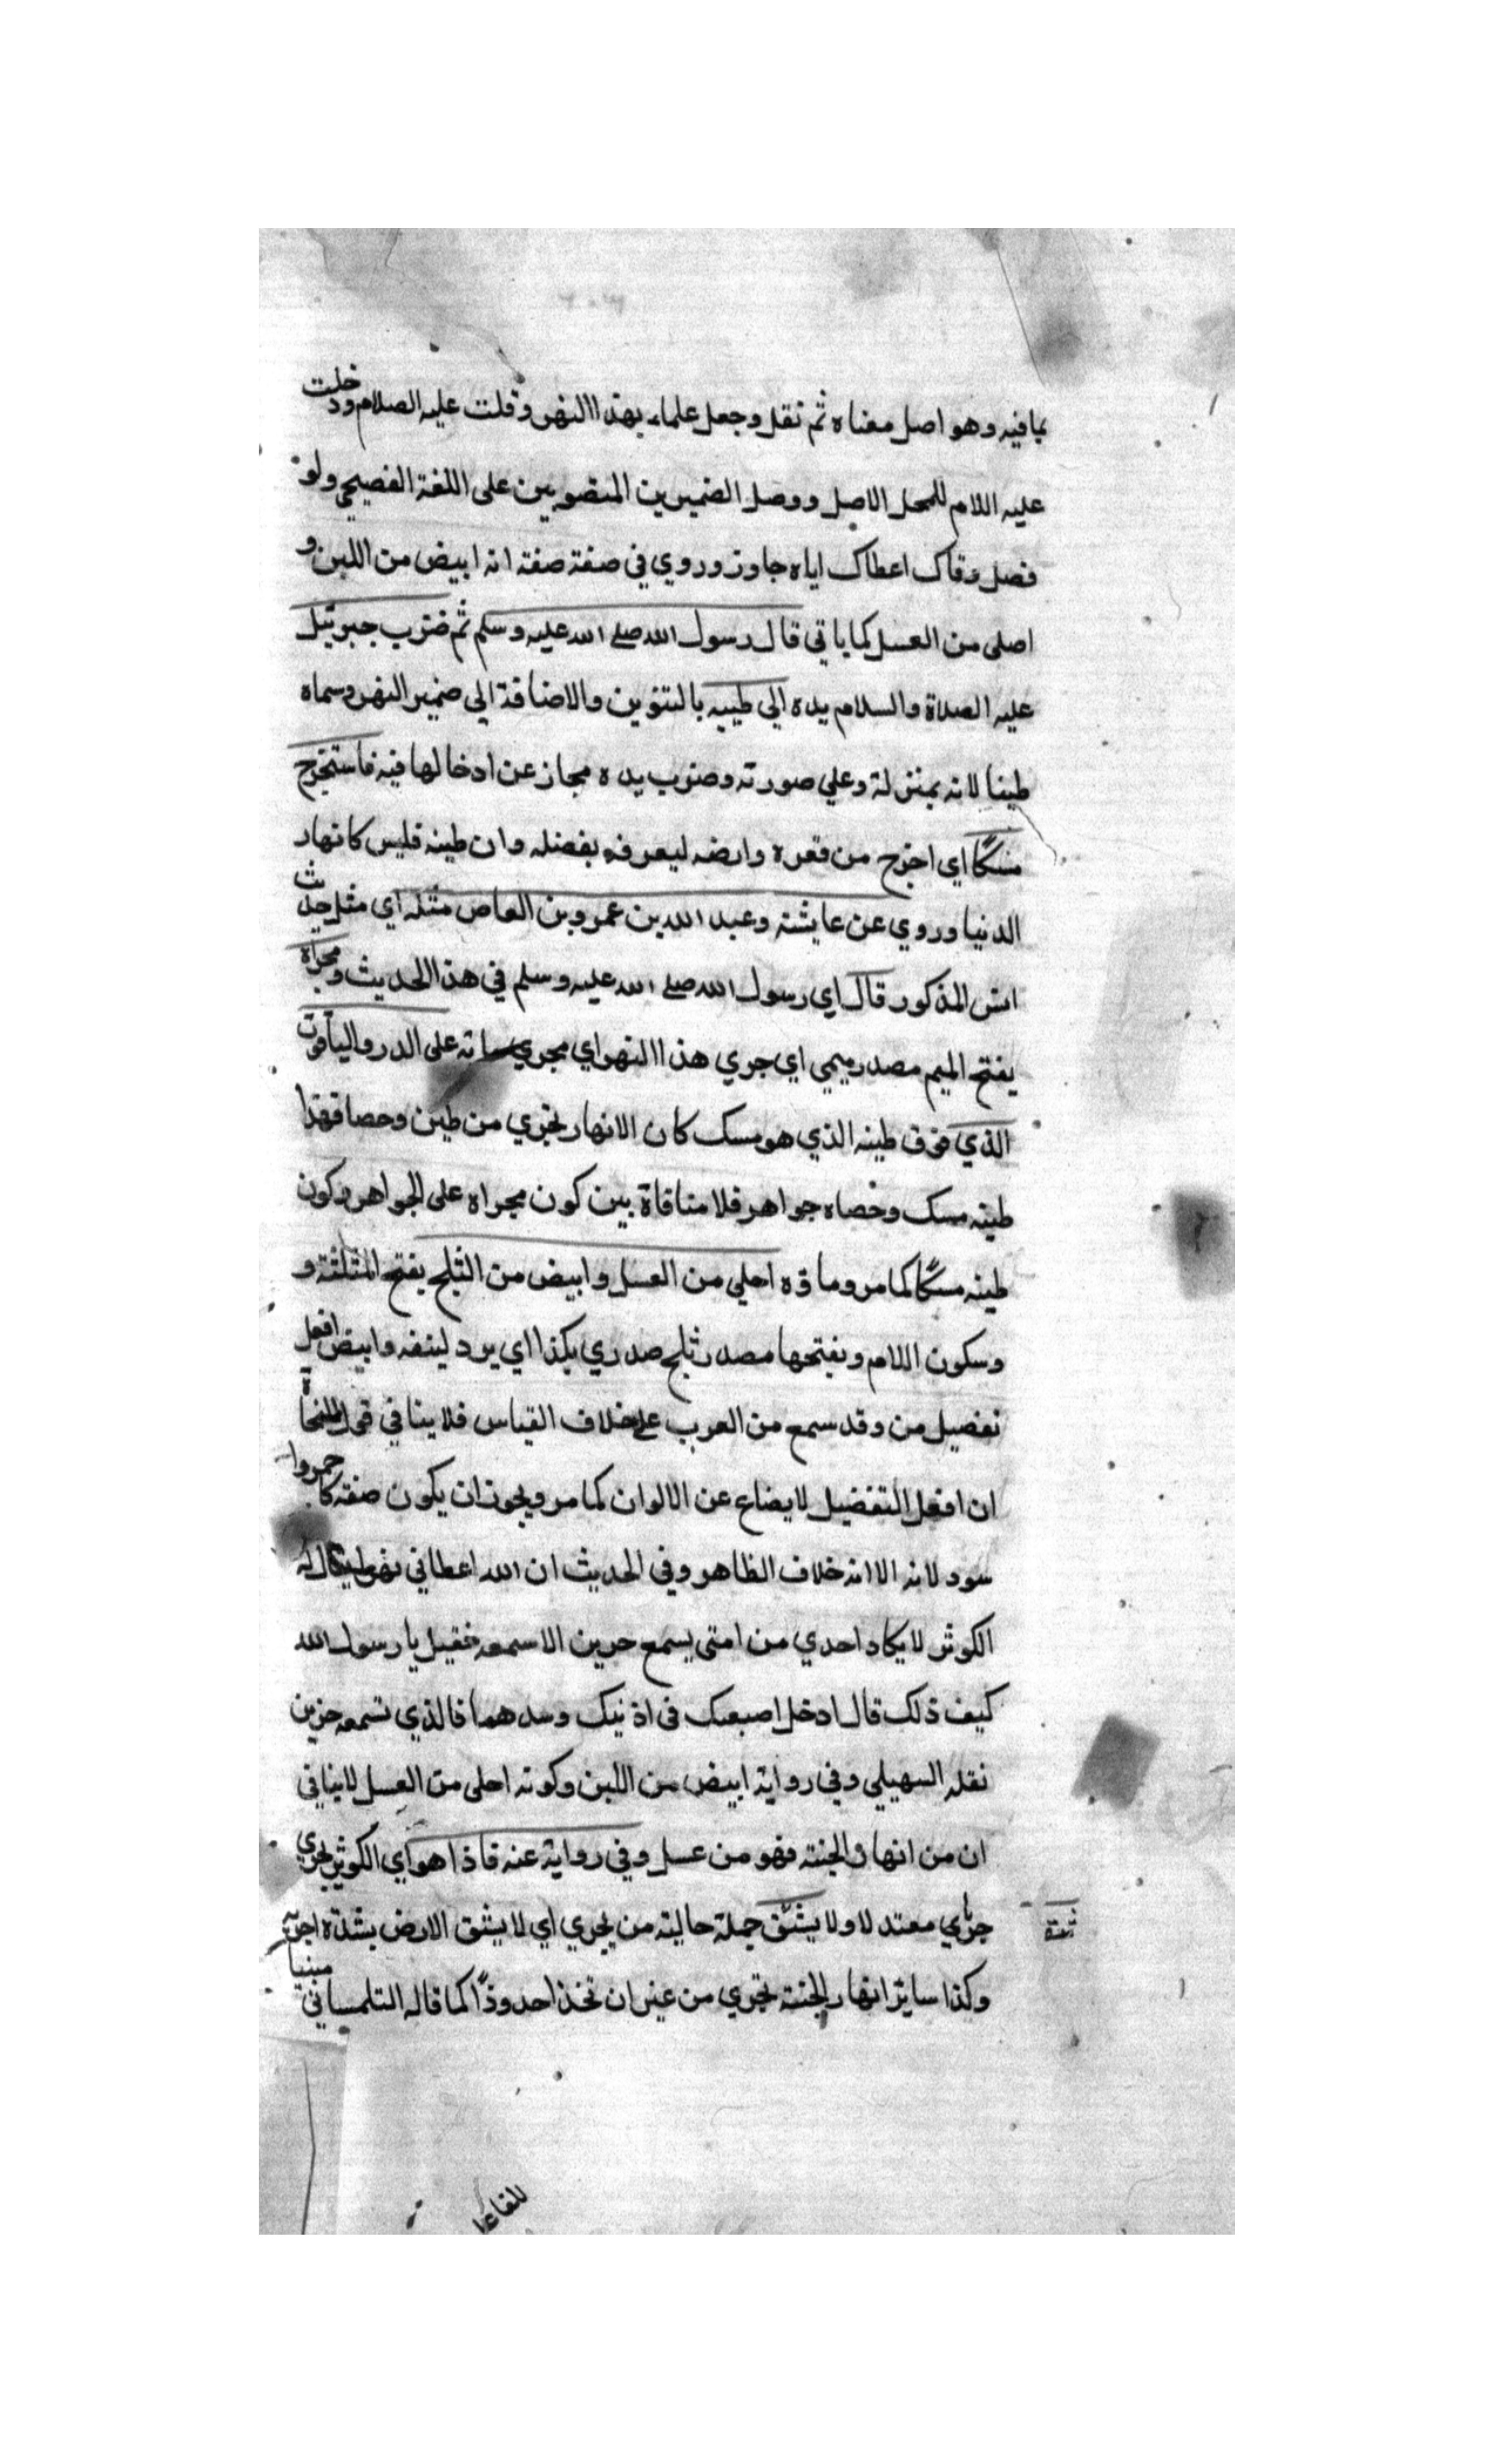 بمافيه وهو اصل معناه ثم نقل وجعل علماء بهذا النهر وقلت عليه الصلام ودخلت
عليه اللام للمحل الاصل ووصل الضميرين المنصوبين على اللغة الفصيحي ولو
فصل وقاك اعطاك اياه جاوز وروي في صفة صفة انه ابيض من اللبن و
اصلى من العسل كما ياتي قال رسول الله صلى الله عليه وسلم ثم ضرب جبرئيل
عليه الصلاة والسلام يده الي طيبه بالتنوين والاضافة الي ضمير النهر وسماه
طينا لانه بمنزلة وعلي صورته وضرب يده مجاز عن ادخالها فيه فاستخرج
مسكًا اي اخرج من قعره وارضه ليعرفه بفضله وان طينه فليس كانهار
الدنيا وروي عن عايشة وعبد الله بن عمرو بن العاص مثله اي مثل حديث
انس المذكور قال اي رسول الله صلى الله عليه وسلم في هذا الحديث ومجراه
يفتح الميم مصدر ميمي اي جري هذا النهر اي مجري ماته على الدر والياقوت
الذي فوق طينه الذي هو مسك كان الانهار تجري من طين وحصا فهذا
طينه مسك وحصاه جواهر فلا منافاة بين كون مجراه على الجواهر وكون
طينه مسكًا كما مر وماوه احلي من العسل وابيض من الثلج يفتح المثلثة و
وسكون اللام وبفتحها مصدر ثلج صدري بكذا اي برد لينفه وابيض افعل
تفضيل من وقد سمع من العرب على خلاف القياس فلا ينافي قول النحاة
ان افعل التفضيل لا يضاع عن الالوان كما مر ويجوز ان يكون صفة كاحمر وا
سود لانه الا انه خلاف الظاهر وفي الحديث ان الله اعطاني نهرا يقال له
الكوثر لا يكاد احدي من امتى يسمع حرين الا سمعه فقيل يا رسول الله
كيف ذلك قال ادخل اصبعك في اذنيك وسدهما فالذي تسمعه حزين
نقله السهيلي وفي رواية ابيض من اللبن وكونه احلى من العسل لا ينافي
ان من انهار الجنته فهو من عسل وفي رواية عنه فاذا هو اي الكوثر يجري
جرئي معتدلا ولا يشق جملة حالية من يجري اي لا يشق الارض بشدة اجريه
وكذا ساير انهار الجنته تجري من غير ان تخذ احدودًا كما قاله التلمساني مبنيا
للفاعل